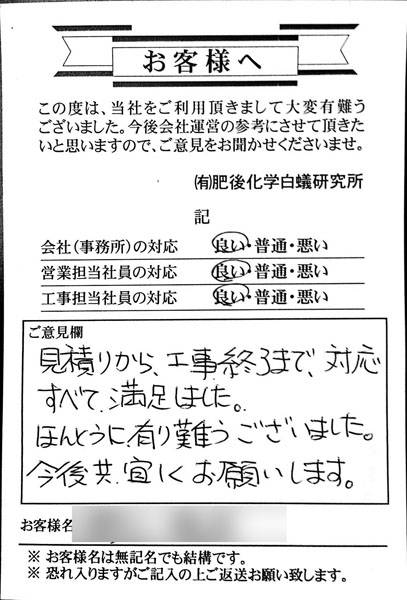 お客様へ
この度は、当社をご利用頂きまして大変有難う
ございました。今後会社運営の参考にさせて頂きた
いと思いますので、ご意見をお聞かせくださいませ。
㈲肥後化学白蟻研究所
記
会社（事務所）の対応 良い・普通・悪い
営業担当社員の対応 良い・普通・悪い
工事担当社員の対応 良い・普通・悪い
ご意見欄
見積りから、工事終了まで、対応
すべて満足しました。
ほんとうに有り難うございました。
今後共宜しくお願いします。
お客様名
※ お客様名は無記名でも結構です。
※ 恐れ入りますがご記入の上ご返送お願い致します。